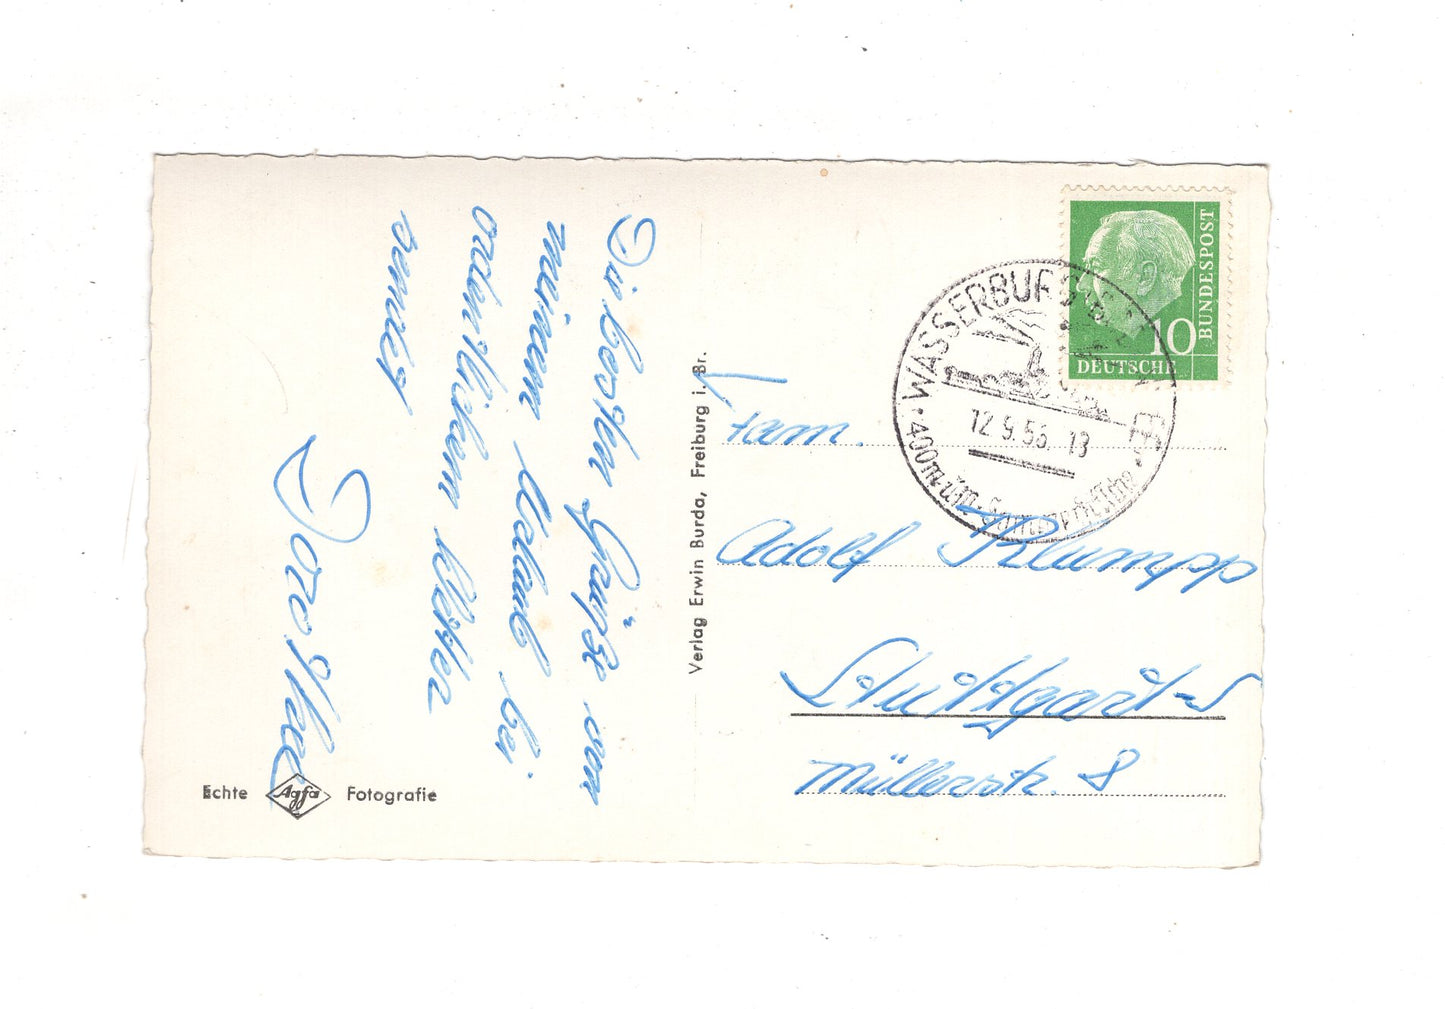 Die besten Grüße von
meinem Urlaub bei
ordentlichem Wetter
sendet
Dorothee
Echte Agfa Fotografie
Verlag Erwin Burda, Freiburg i. Br.
DEUTSCHE
BUNDESPOST
10
WASSERBURG
12.9.56.-13
400 m üm.
Fam.
Adolf Klumpp
Stuttgart-S
Müllerstr. 8